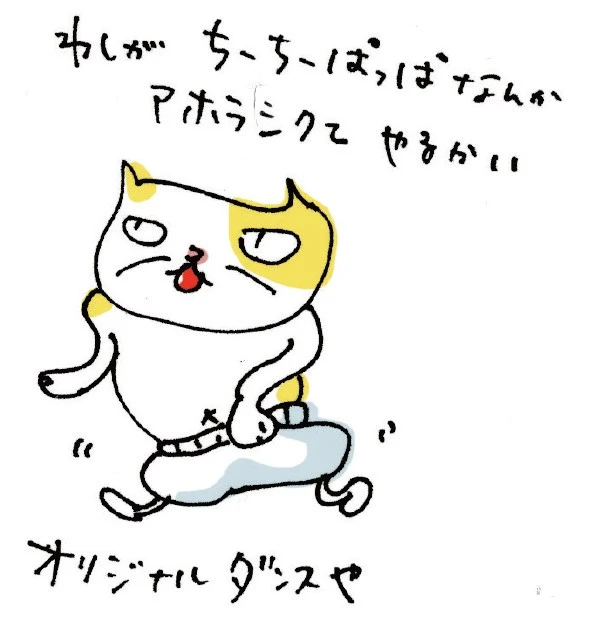 わしが ちーちーぱっぱなんか
アホラシクて やるかい
オリジナルダンスや